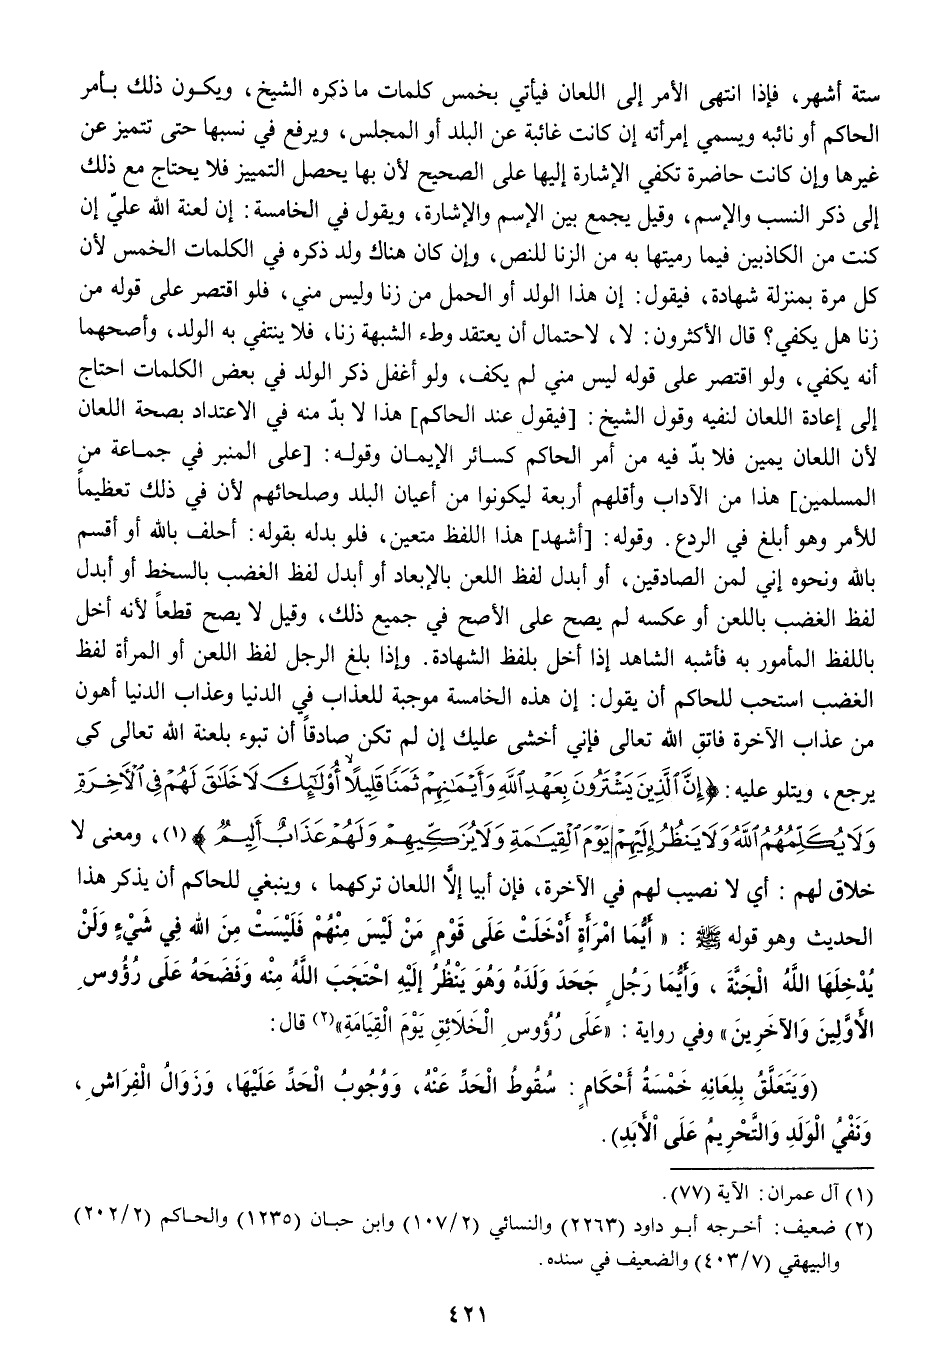 ستة أشهر، فإذا انتهى الأمر إلى اللعان فيأتي بخمس كلمات ما ذكره الشيخ، ويكون ذلك بأمر
الحاكم أو نائبه ويسمي إمرأته إن كانت غائبة عن البلد أو المجلس، ويرفع في نسبها حتى تتميز عن
غيرها وإن كانت حاضرة تكفي الإشارة إليها على الصحيح لأن بها يحصل التمييز فلا يحتاج مع ذلك
إلى ذكر النسب والإسم، وقيل يجمع بين الإسم والإشارة، ويقول في الخامسة: إن لعنة الله عليّ إن
كنت من الكاذبين فيما رميتها به من الزنا للنص، وإن كان هناك ولد ذكره في الكلمات الخمس لأن
كل مرة بمنزلة شهادة، فيقول: إن هذا الولد أو الحمل من زنا وليس مني، فلو اقتصر على قوله من
زنا هل يكفي؟ قال الأكثرون: لا، لاحتمال أن يعتقد وطء الشبهة زنا، فلا ينتفي به الولد، وأصحهما
أنه يكفي، ولو اقتصر على قوله ليس مني لم يكف، ولو أغفل ذكر الولد في بعض الكلمات احتاج
إلى إعادة اللعان لنفيه وقول الشيخ: [فيقول عند الحاكم] هذا لا بدّ منه في الاعتداد بصحة اللعان
لأن اللعان يمين فلا بدّ فيه من أمر الحاكم كسائر الإيمان وقوله: [على المنبر في جماعة من
المسلمين] هذا من الآداب وأقلهم أربعة ليكونوا من أعيان البلد وصلحائهم لأن في ذلك تعظيماً
للأمر وهو أبلغ في الردع. وقوله: [أشهد] هذا اللفظ متعين، فلو بدله بقوله: أحلف بالله أو أقسم
بالله ونحوه إني لمن الصادقين، أو أبدل لفظ اللعن بالإبعاد أو أبدل لفظ الغضب بالسخط أو أبدل
لفظ الغضب باللعن أو عكسه لم يصح على الأصح في جميع ذلك، وقيل لا يصح قطعاً لأنه أخل
باللفظ المأمور به فأشبه الشاهد إذا أخل بلفظ الشهادة. وإذا بلغ الرجل لفظ اللعن أو المرأة لفظ
الغضب استحب للحاكم أن يقول: إن هذه الخامسة موجبة للعذاب في الدنيا وعذاب الدنيا أهون
من عذاب الآخرة فاتق الله تعالى فإني أخشى عليك إن لم تكن صادقاً أن تبوء بلعنة الله تعالى كي
يرجع، ويتلو عليه: ﴿إِنَّ ٱلَّذِينَ يَشْتَرُونَ بِعَهْدِ ٱللَّهِ وَأَيْمَـٰنِهِمْ ثَمَنًا قَلِيلًا أُوْلَـٰٓئِكَ لَا خَلَـٰقَ لَهُمْ فِي ٱلْآخِرَةِ
وَلَا يُكَلِّمُهُمُ ٱللَّهُ وَلَا يَنظُرُ إِلَيْهِمْ يَوْمَ ٱلْقِيَـٰمَةِ وَلَا يُزَكِّيهِمْ وَلَهُمْ عَذَابٌ أَلِيمٌ﴾(١)، ومعنى لا
خلاق لهم: أي لا نصيب لهم في الآخرة، فإن أبيا إلاَّ اللعان تركهما، وينبغي للحاكم أن يذكر هذا
الحديث وهو قوله ﷺ: «أَيُّمَا امْرَأَةٍ أَدْخَلَتْ عَلَى قَوْمٍ مَنْ لَيْسَ مِنْهُمْ فَلَيْسَتْ مِنَ اللهِ فِي شَيْءٍ وَلَنْ
يُدْخِلَهَا اللَّهُ الْجَنَّةَ، وَأَيُّمَا رَجُلٍ جَحَدَ وَلَدَهُ وَهُوَ يَنْظُرُ إِلَيْهِ احْتَجَبَ اللَّهُ مِنْه وَفَضَحَهُ عَلَى رُؤُوسِ
الأَوَّلِينَ وَالآخَرِينَ» وفي رواية: «عَلَى رُؤُوسِ الْخَلائِقِ يَوْمَ الْقِيَامَةِ»(٢) قال:
(وَيَتَعَلَّقُ بِلِعَانِهِ خَمْسَةُ أَحْكَامٍ: سُقُوطُ الْحَدِّ عَنْهُ، وَوُجُوبُ الْحَدِّ عَلَيْهَا، وَزَوَالُ الْفِرَاشِ،
وَنَفْيُ الْوَلَدِ وَالتَّحْرِيمُ عَلَى الْأَبَدِ).
(١) آل عمران: الآية (٧٧).
(٢) ضعيف: أخرجه أبو داود (٢٢٦٣) والنسائي (١٠٧/٢) وابن حبان (١٢٣٥) والحاكم (٢٠٢/٢)
والبيهقي (٤٠٣/٧) والضعيف في سنده.
٤٢١